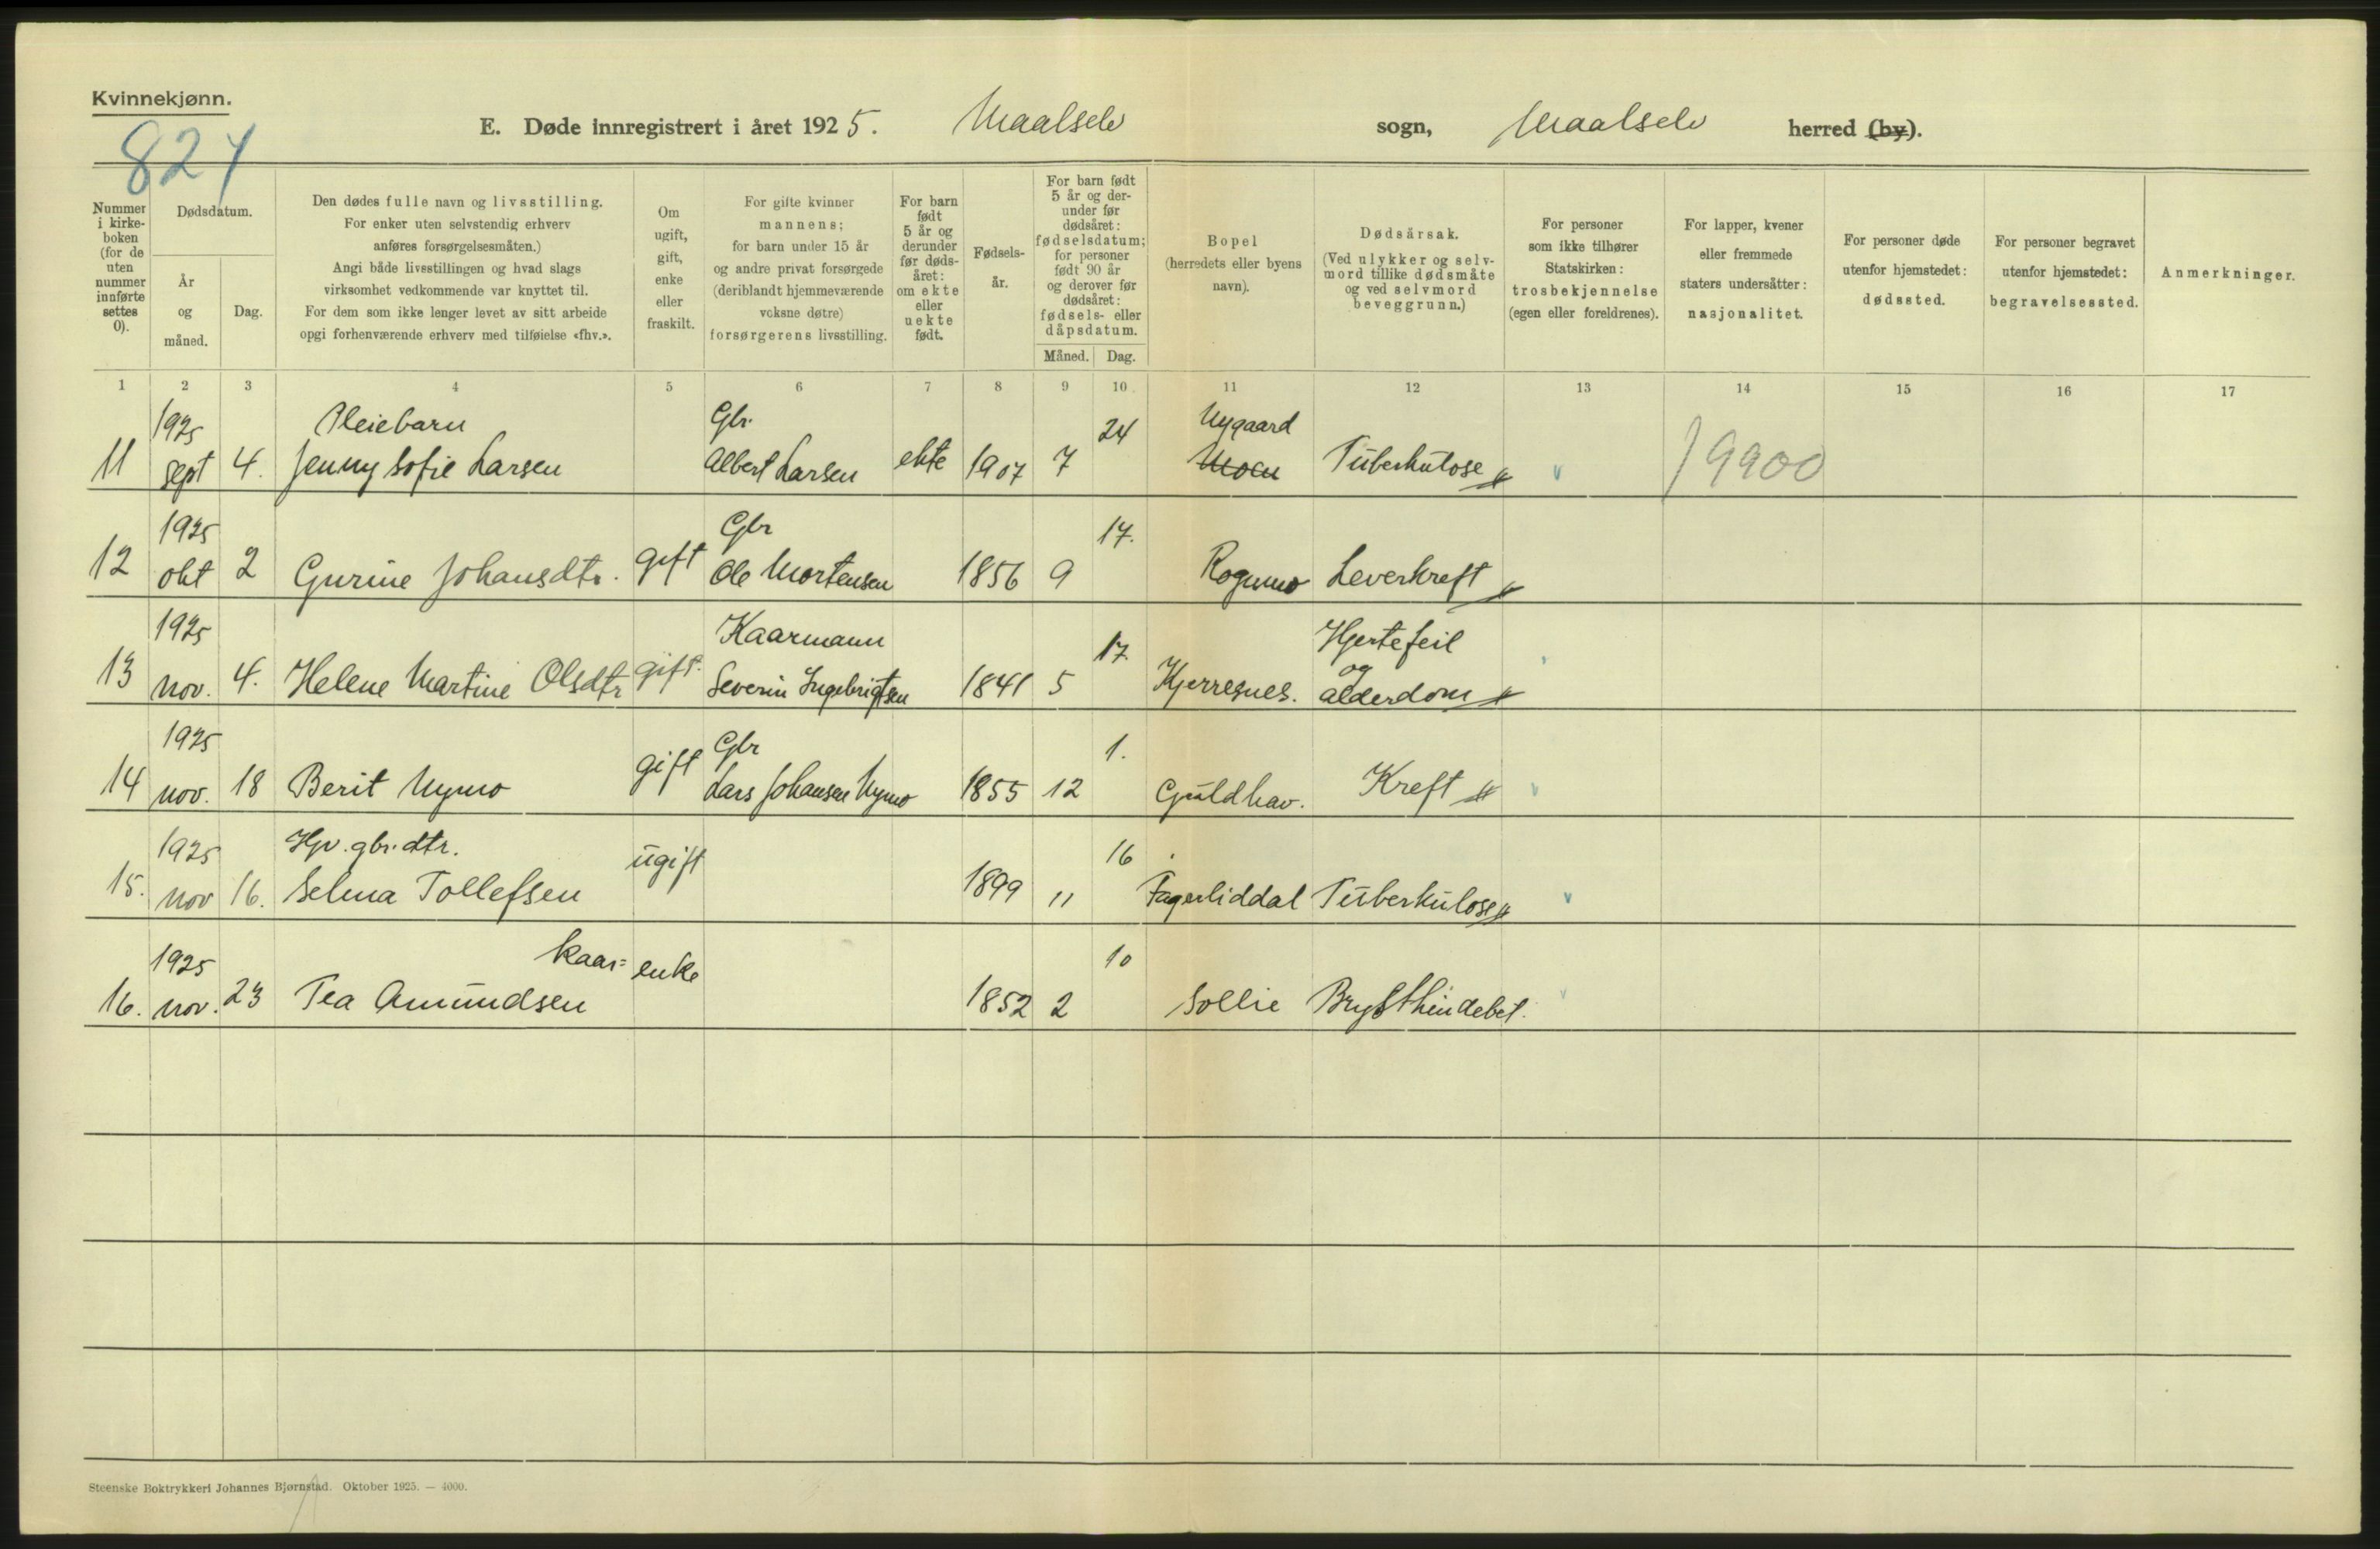 Kvinnekjønn.
824
E. Døde innregistrert i året 1925. Maalselv sogn, Maalselv herred (by).
Nummer i kirkeboken (for de uten nummer innførte settes 0).
Dødsdatum.
År og måned.
Dag.
Den dødes fulle navn og livsstilling.
For enker uten selvstendig erhverv
anføres forsørgelsesmåten.)
Angi både livsstillingen og hvad slags
virksomhet vedkommende var knyttet til.
For dem som ikke lenger levet av sitt arbeide
opgi forhenværende erhverv med tilføielse «fhv.».
Om ugift, gift, enke eller fraskilt.
For gifte kvinner
mannens;
for barn under 15 år
og andre privat forsørgede
(deriblandt hjemmeværende
voksne døtre)
forsørgerens livsstilling.
For barn født 5 år og derunder før dødsåret: om ekte eller uekte født.
Fødselsår.
For barn født 5 år og derunder før dødsåret: fødselsdatum; for personer født 90 år og derover før dødsåret: fødsels- eller dåpsdatum.
Måned. Dag.
Bopel
(herredets eller byens
navn).
Dødsårsak.
(Ved ulykker og selv-
mord tillike dødsmåte
og ved selvmord
beveggrunn.)
For personer
som ikke tilhører
Statskirken:
trosbekjennelse
(egen eller foreldrenes).
For lapper, kvener
eller fremmede
staters undersåtter:
nasjonalitet.
For personer døde
utenfor hjemstedet:
dødssted.
For personer begravet
utenfor hjemstedet:
begravelsessted.
Anmerkninger.
1 2 3 4 5 6 7 8 9 10 11 12 13 14 15 16 17
1925 Pleiebarn Gbr. 24 Nygaard
11 sept 4. Jenny Sofie Larsen Albert Larsen ekte 1907 7 Moen Tüberkulose 19900
1925 Gbr 17.
12 okt 2 Gurine Johansdtr. gift Ole Mortensen 1856 9 Rognmo Leverkreft
1925 Kaarmann 17. Hjertefeil
13 nov. 4. Helene Martine Olsdtr gift. Severin Ingebrigtsen 1841 5 Kjerresnes. og alderdom
1925 Gbr 1.
14 nov. 18 Berit Nymo gift Lars Johansen Nymo 1855 12 Guldhav. Kreft
1925 Hjv. gbr. dtr. 16
15. nov 16. Selma Tollefsen ugift 1899 11 Fagerliddal Tüberkulose
1925 Kaar= enke 10
16. nov. 23 Tea Amundsen 1852 2 Sollie Brysthindebet.
Steenske Boktrykkeri Johannes Bjørnstad. Oktober 1925. — 4000.